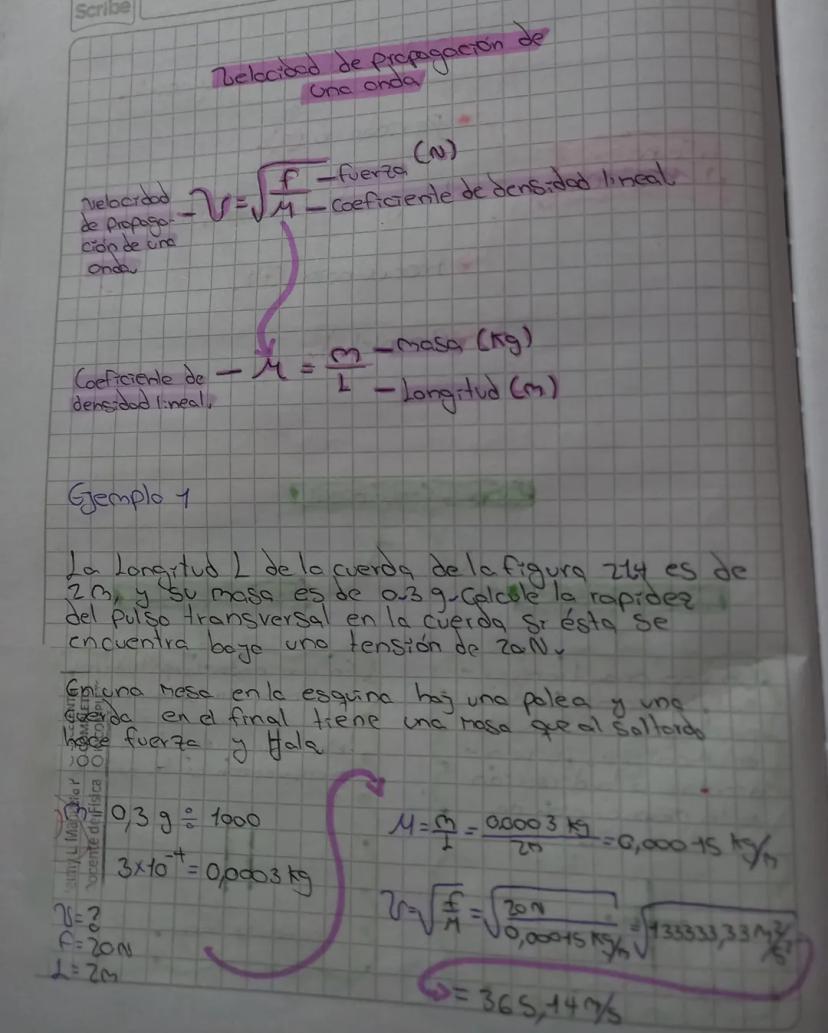 Scribe
Velocidad de propagación de
una onda
Velocidad
de propaga-
ción de una
onda
- V = √(F/μ)
- fuerza (N)
- coeficiente de densidad lineal
Coeficiente de
densidad lineal
- μ = m/L
- masa (kg)
- Longitud (m)
Ejemplo 1
La Longitud L de la cuerda de la figura 214 es de
2m, y su masa es de 0.3 g. Calcule la rapidez
del pulso transversal en la cuerda si ésta se
encuentra bajo una tensión de 20N.
En una mesa en la esquina hay una polea y una
cuerda en el final tiene una masa que al soltarla
hace fuerza y Hala
0,3 g ÷ 1000
3×10⁻⁴ = 0,0003 kg
V = ?
F = 20N
L = 2m
μ = m/L = 0,0003 kg/2m = 0,00015 kg/m
V = √(F/μ) = √(20N/0,00015 kg/m) = √(133333,33 m²/s²)
= 365,14 m/s
ocente de Física